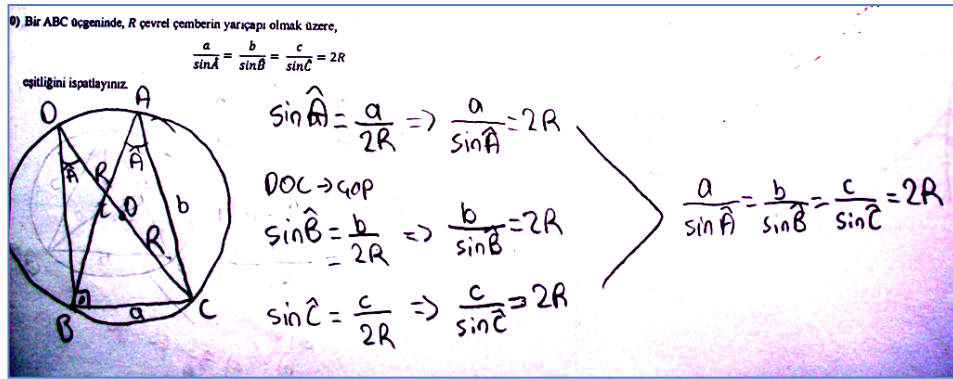 0) Bir ABC üçgeninde, R çevrel çemberin yarıçapı olmak üzere,
a/sinÂ = b/sinB̂ = c/sinĈ = 2R
eşitliğini ispatlayınız.
D A
Â Â
R c O b
R
B a C
sin Â = a/2R => a/sinÂ = 2R
DOC → çap
sinB̂ = b/2R => b/sinB̂ = 2R
sinĈ = c/2R => c/sinĈ = 2R
a/sinÂ = b/sinB̂ = c/sinĈ = 2R